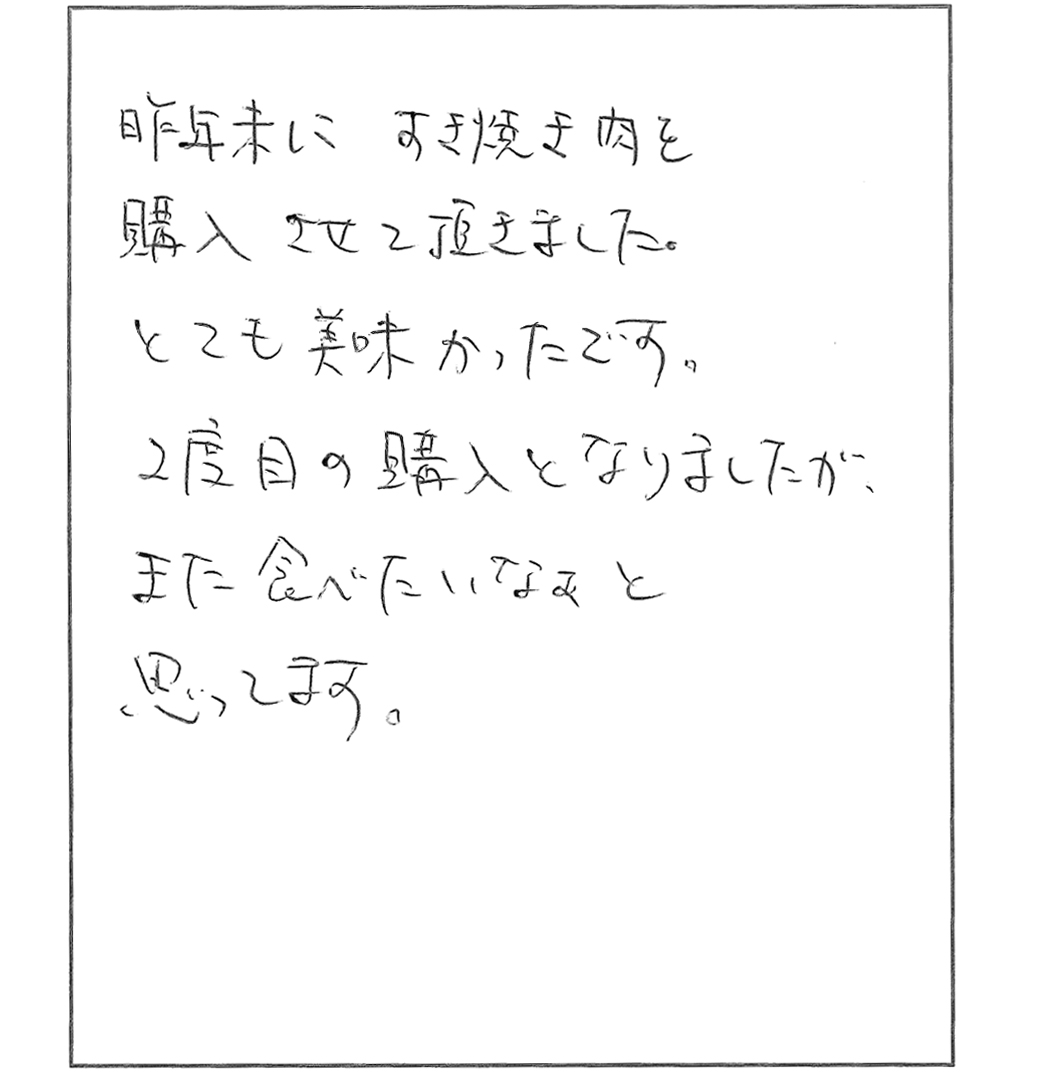 昨年末に すき焼き肉を
購入 させて頂きました。
とても美味かったです。
2度目の購入となりましたが、
また食べたいなぁと
思ってます。